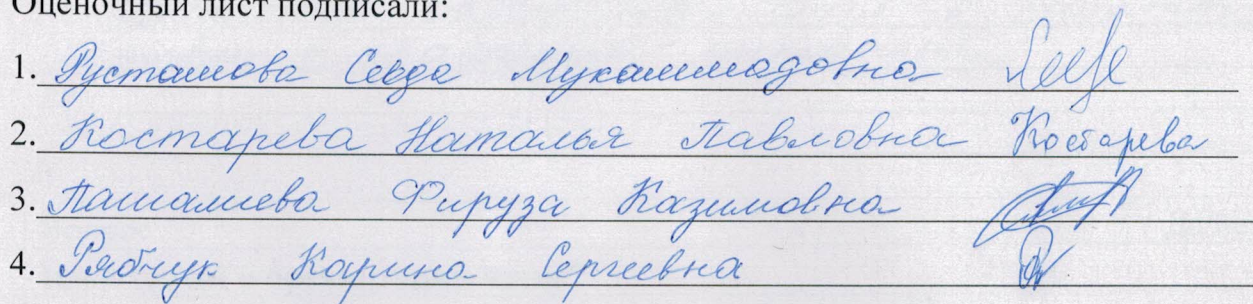 Оценочный лист подписали:
1. Рустамова Севда Мухаммадовна
2. Костарева Наталья Павловна Костарева
3. Пашалиева Фируза Казимовна
4. Рябчук Карина Сергеевна